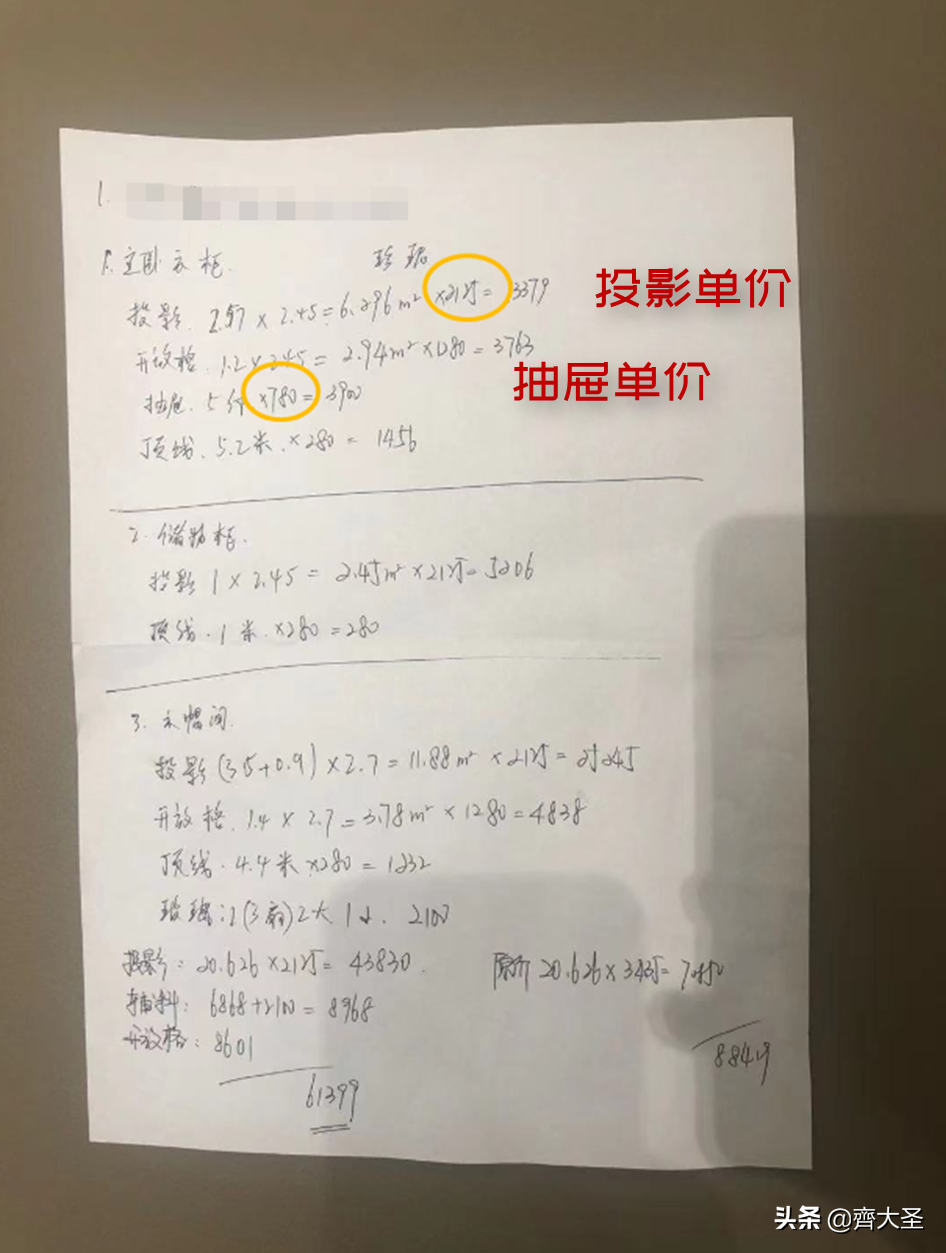 1.
1. 主卧衣柜.
投影. 2.57 × 2.45 = 6.296m² ×2125 = 13379
投影单价
开放格. 1.2 × 2.45 = 2.94m² ×1280 = 3763
抽屉单价
抽屉. 5件 ×780 = 3900
顶线. 5.2米. ×280 = 1456
2. 储物柜.
投影 1 × 2.45 = 2.45m² ×2125 = 5206
顶线. 1米. ×280 = 280
3. 衣帽间.
投影 (3.5+0.9) × 2.7 = 11.88m² ×2125 = 25245
开放格. 1.4 × 2.7 = 3.78m² × 1280 = 4838
顶线. 4.4米 ×280 = 1232
玻璃: (3扇) 2大. 1小. 2100
投影: 20.626 ×2125 = 43830.
原价 20.626 × 3435 =
辅料: 6868+2100 = 8968
开放格: 8601
61399
头条 @齊大圣